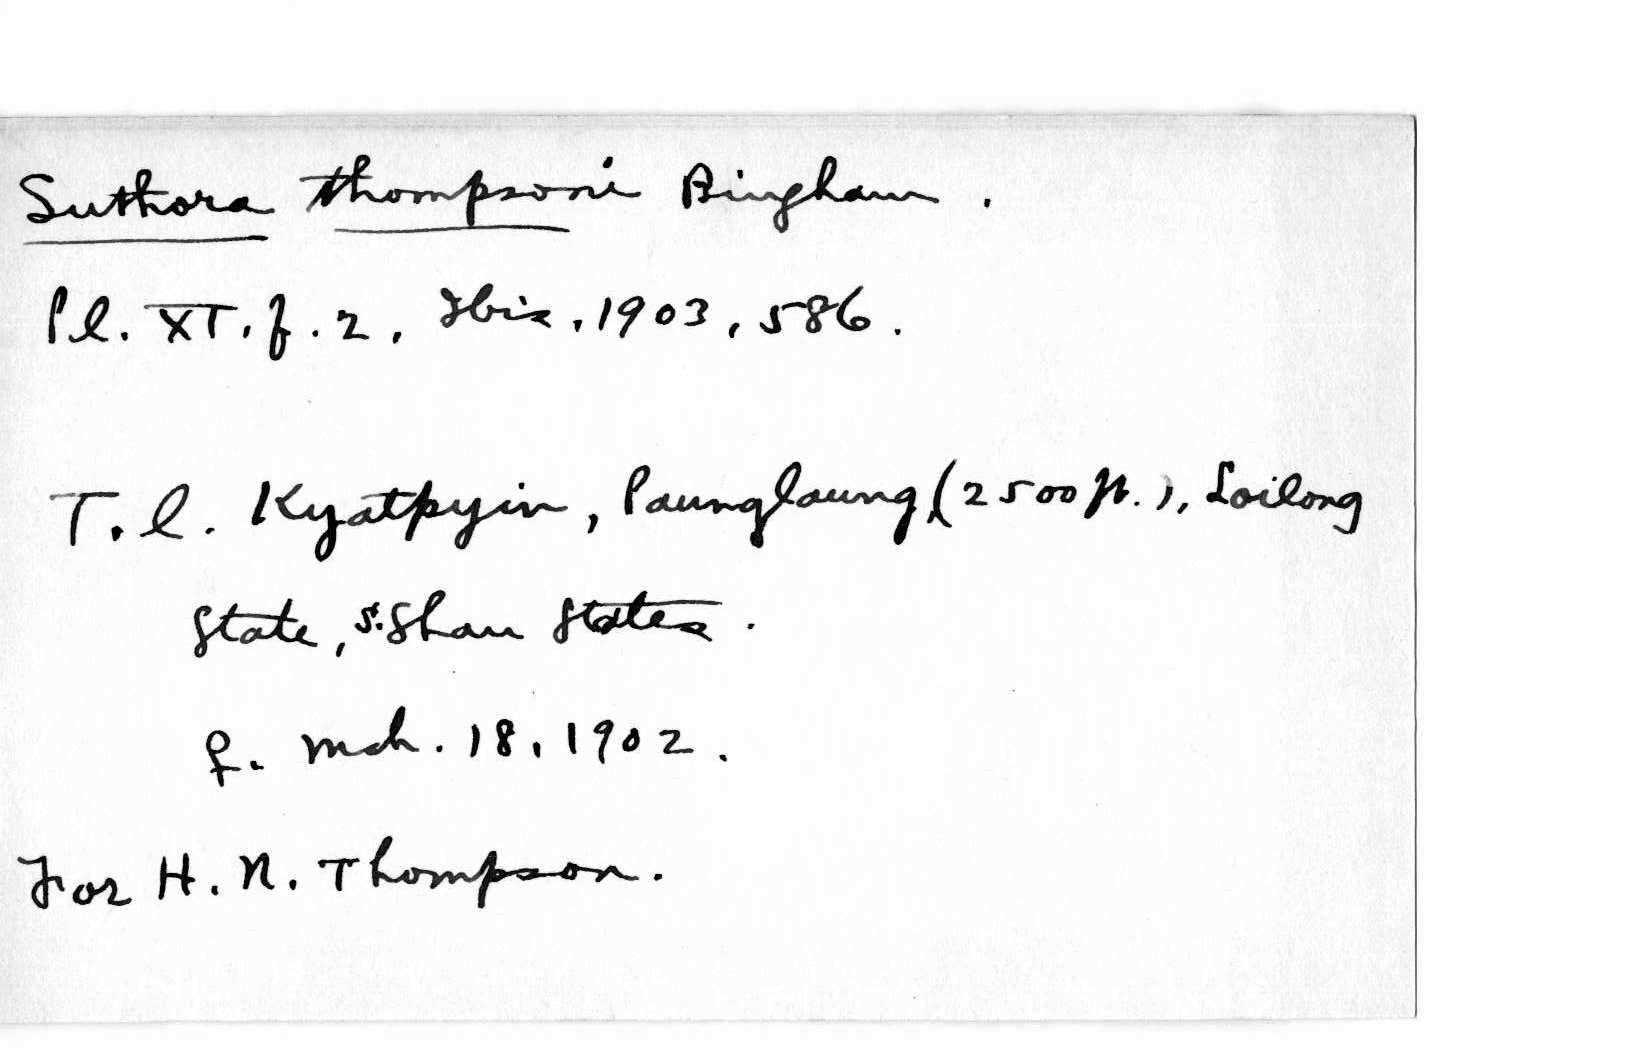 Suthora thompsoni Bingham.
Pl. XI. f. 2. Ibis, 1903, 586.
T. l. Kyatpyin, Paunglaung (2500 ft.), Loilong
State, S. Shan States.
♀. Mch. 18, 1902.
For H. N. Thompson.